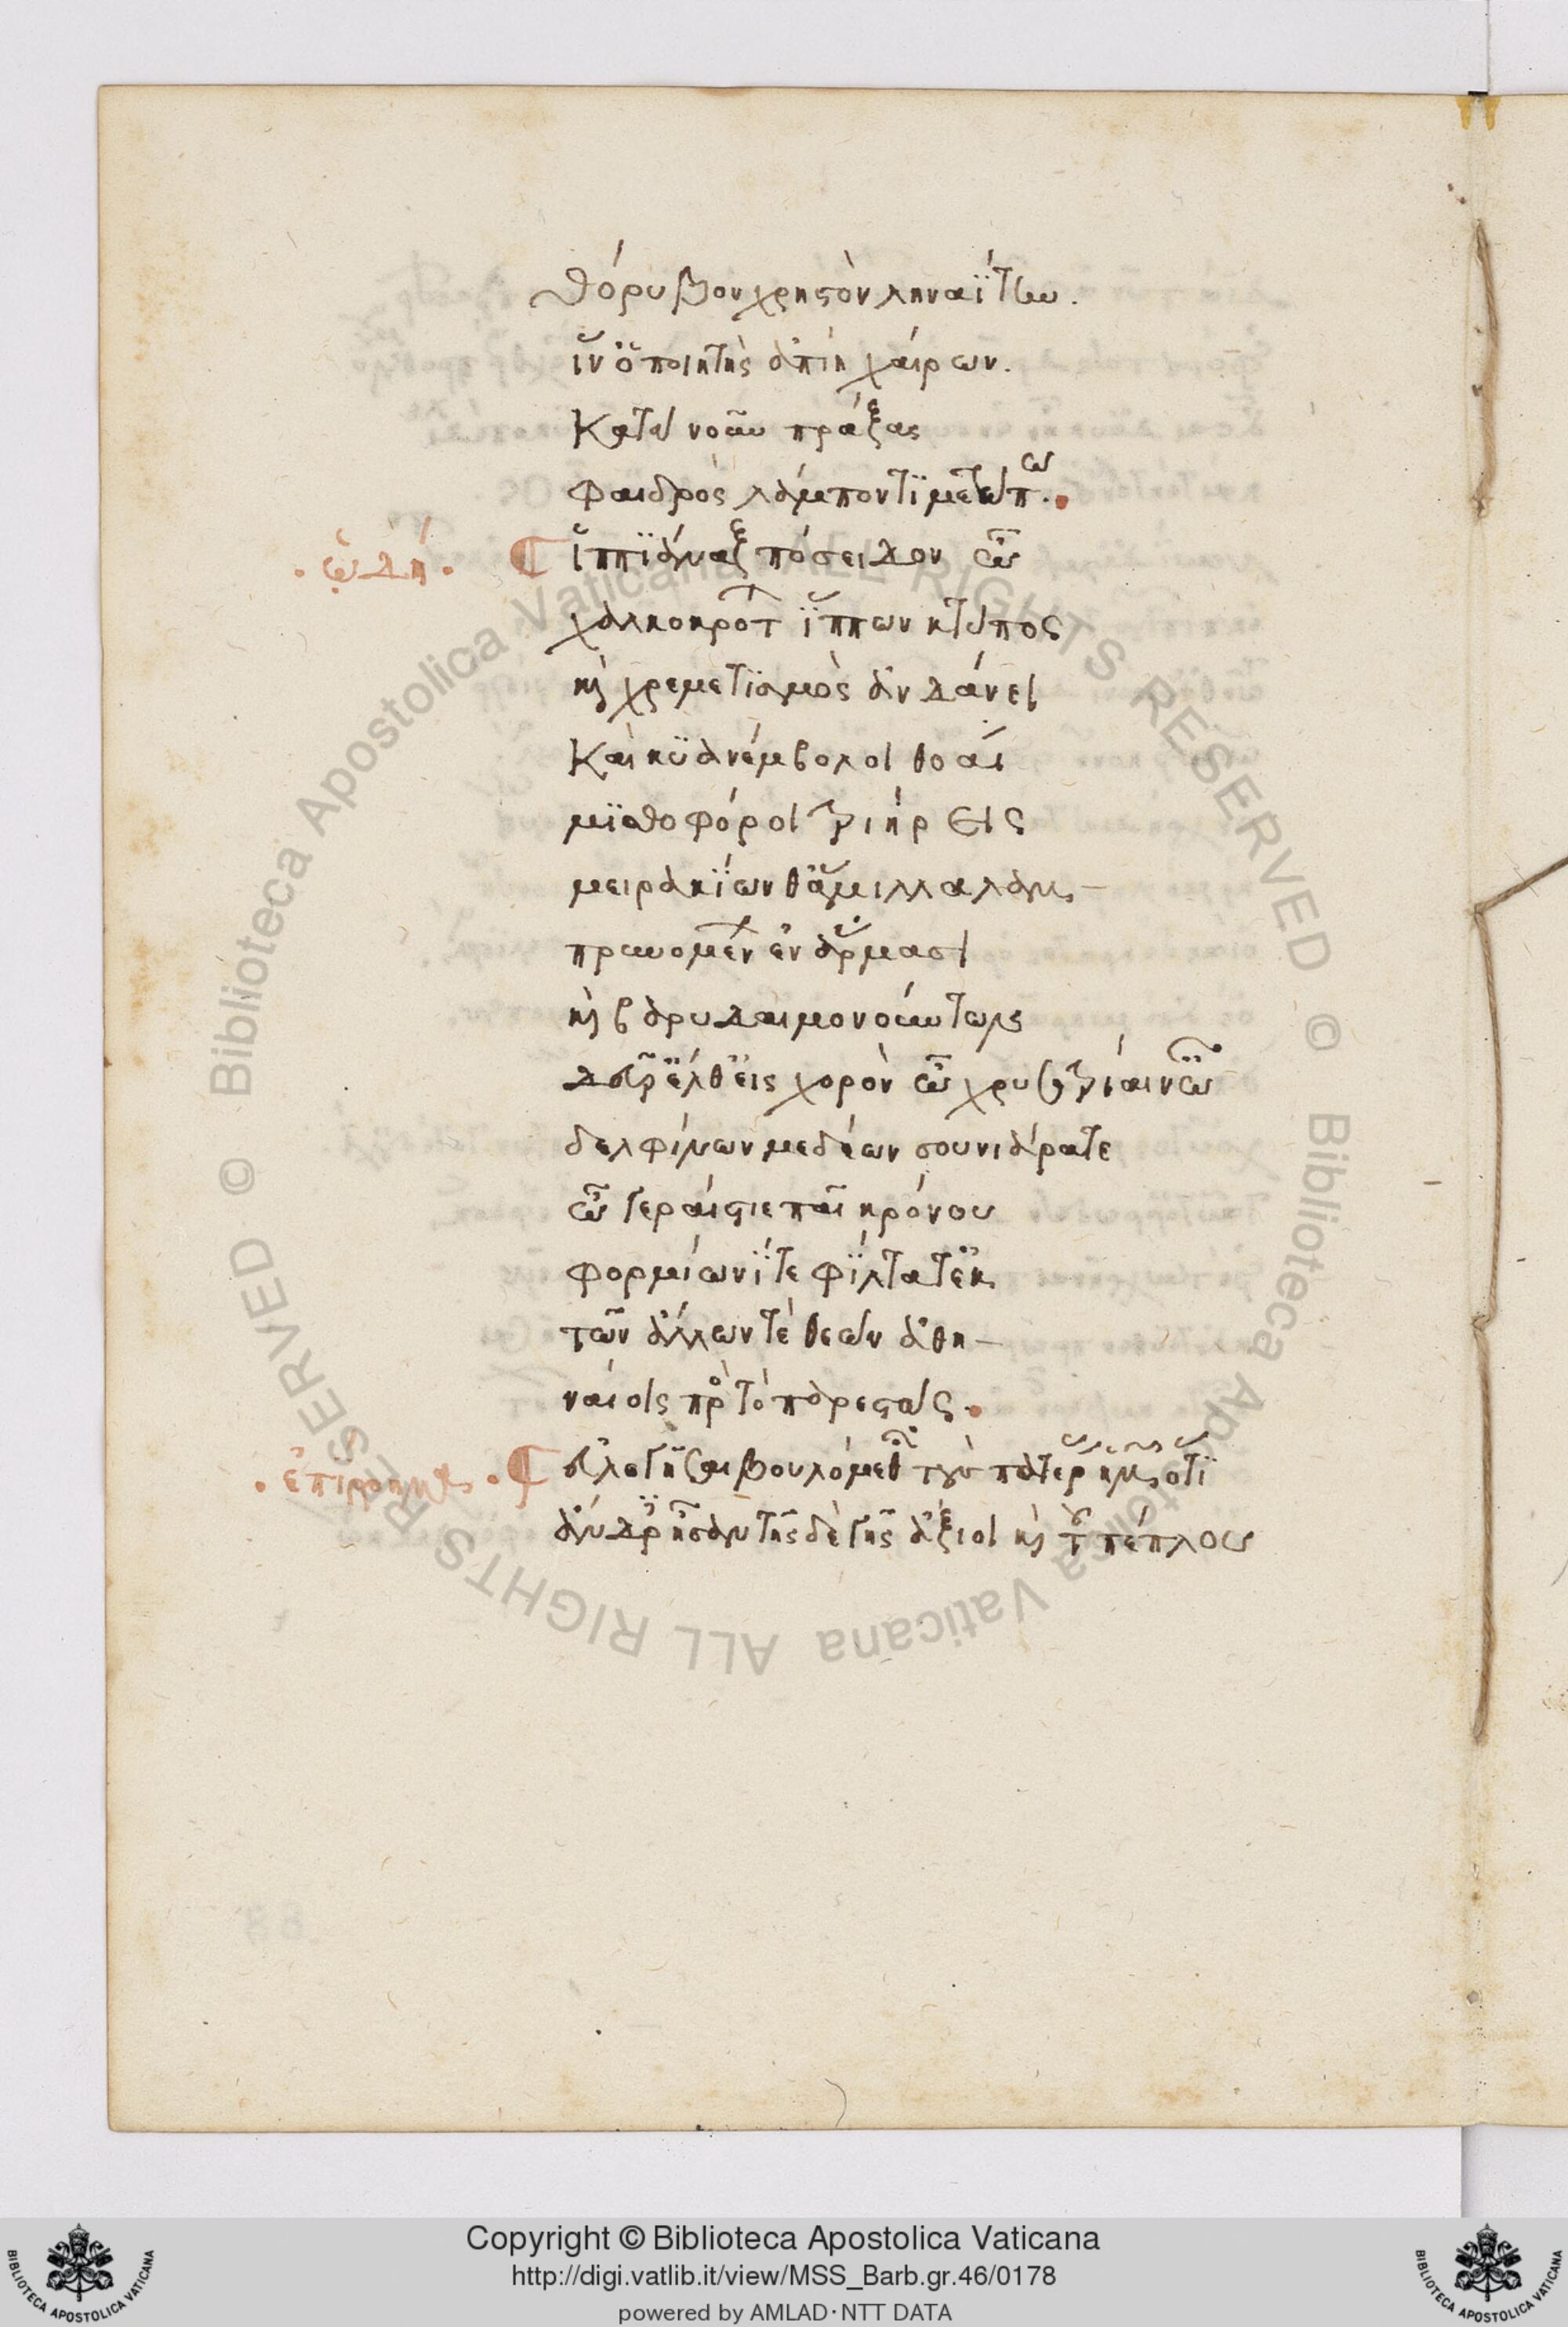 θόρυβον χρηστὸν ληναΐτην.
ἵν ὁ ποιητὴς ἀπίη χαίρων.
Κατὰ νοῦν πράξας
φαιδρὸς λάμποντι μετώπω.
.ὠδή. ἵππι άναξ πόσειδον ὦ
χαλκοκρότων ἵππων κτύπος
καὶ χρεμετισμὸς ἁνδάνει
Καὶ κυανέμβολοι θοαὶ
μισθοφόροι τριήρεις
μειρακίων θ ἅμιλλα λαμ-
πρυνομένων ἐν ἅρμασι
καὶ βαρυδαιμονούντων
δεῦρ ἔλθ εἰς χορὸν ὦ χρυσοτρίαιν ὦ
δελφίνων μεδέων σουνιάρατε
ὦ γεραίστιε παῖ κρόνου
φορμίωνί τε φίλτατ ἐκ
τῶν ἄλλων τὲ θεῶν ἀθη-
ναίοις πρὸς τὸ παρεστώς.
.ἐπίρρημα. εὐλογῆσαι βουλόμεθα τοὺς πατέρας ἡμῶν ὅτι
ἄνδρες ἦσαν τῆσδε γῆς ἄξιοι καὶ τοῦ πέπλου
Copyright © Biblioteca Apostolica Vaticana
http://digi.vatlib.it/view/MSS_Barb.gr.46/0178
powered by AMLAD·NTT DATA
© Biblioteca Apostolica Vaticana ALL RIGHTS RESERVED
© Biblioteca Apostolica Vaticana ALL RIGHTS RESERVED
BIBLIOTECA APOSTOLICA VATICANA
BIBLIOTECA APOSTOLICA VATICANA